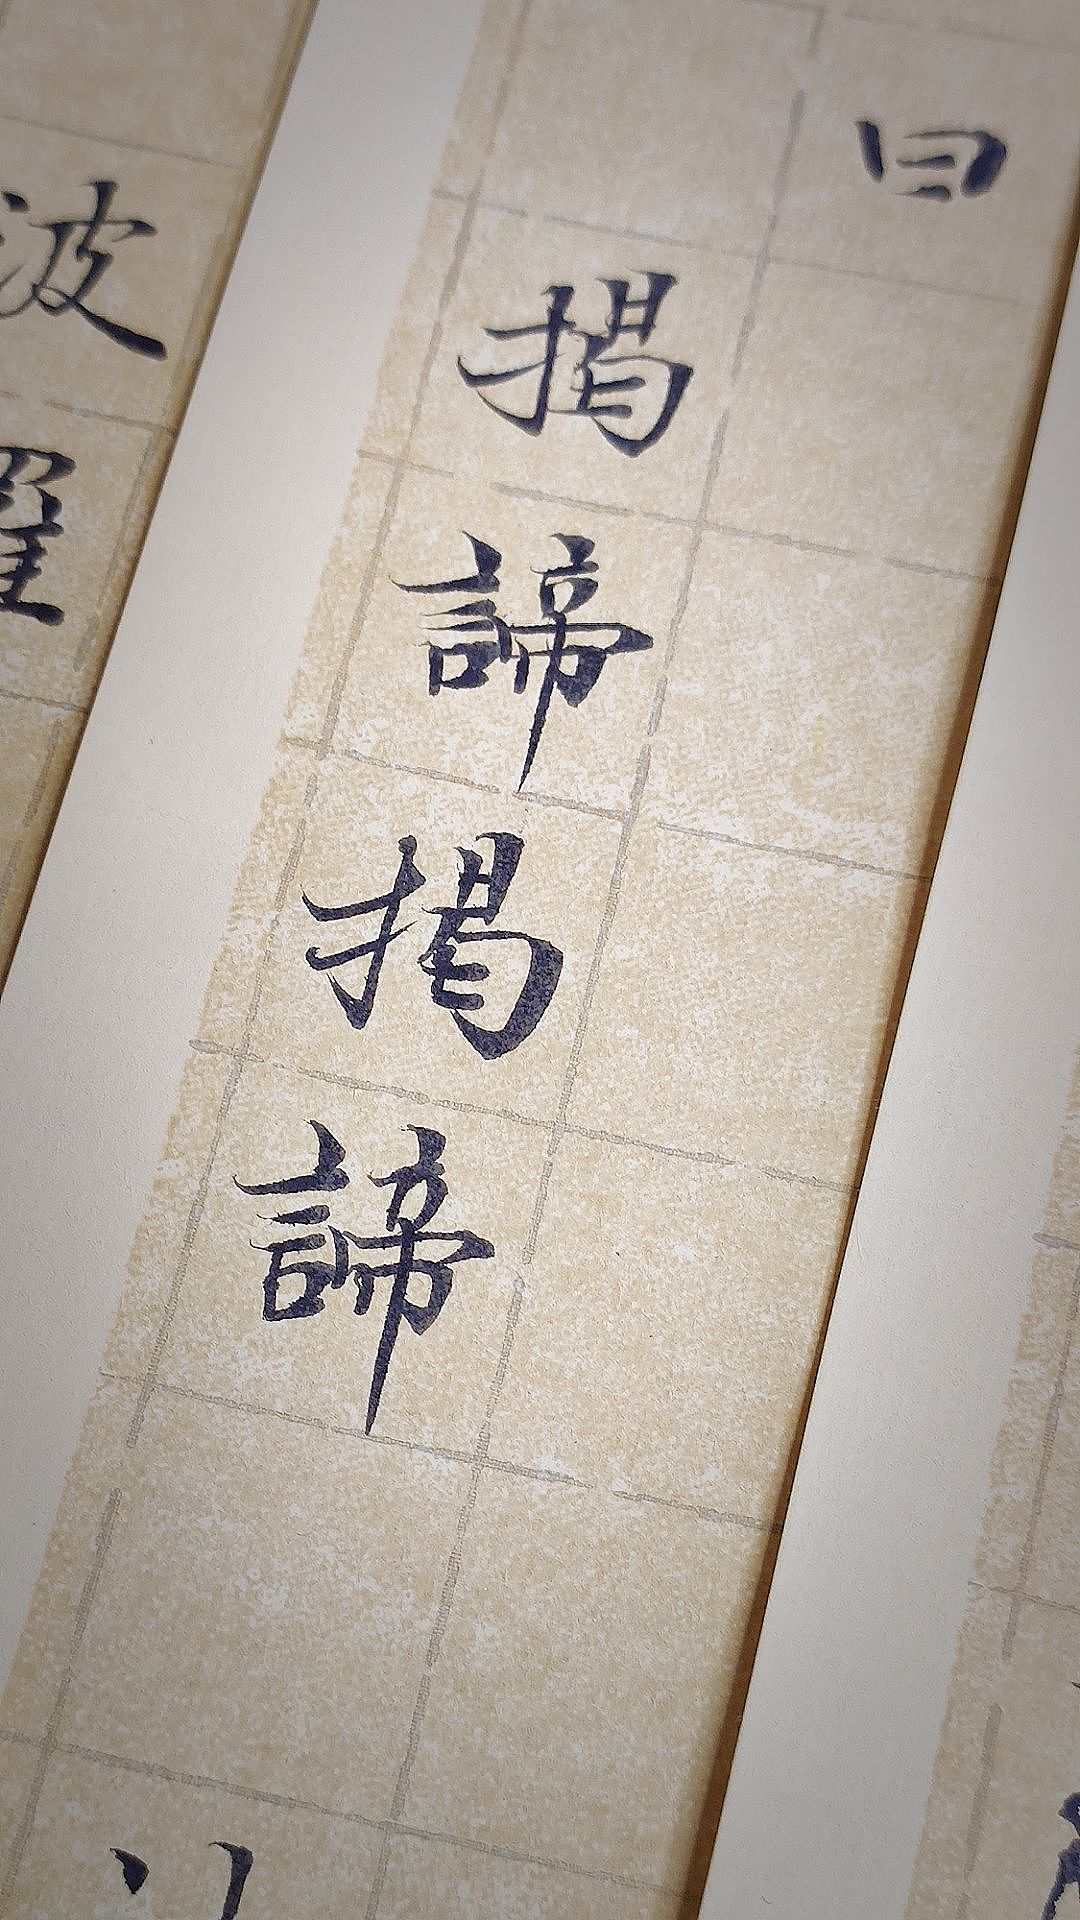 曰
揭諦揭諦
波羅